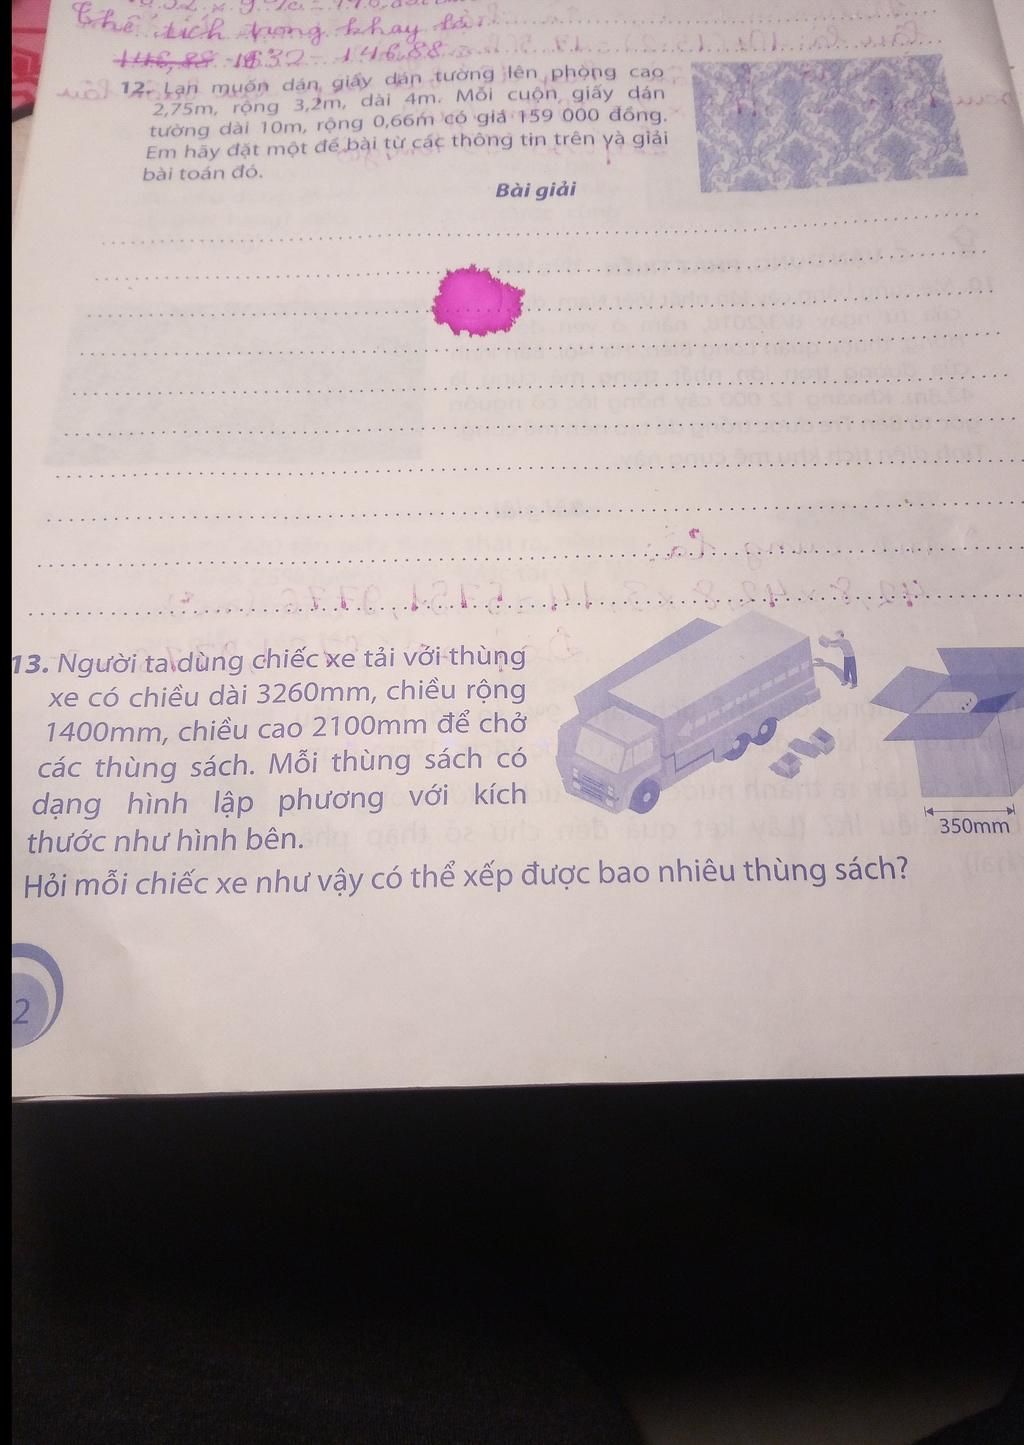 Thể tích trong khay là:
1632 - 146,88
12. Lan muốn dán giấy dán tường lên phòng cao
2,75m, rộng 3,2m, dài 4m. Mỗi cuộn giấy dán
tường dài 10m, rộng 0,66m có giá 159 000 đồng.
Em hãy đặt một đề bài từ các thông tin trên và giải
bài toán đó.
Bài giải
13. Người ta dùng chiếc xe tải với thùng
xe có chiều dài 3260mm, chiều rộng
1400mm, chiều cao 2100mm để chở
các thùng sách. Mỗi thùng sách có
dạng hình lập phương với kích
thước như hình bên.
350mm
Hỏi mỗi chiếc xe như vậy có thể xếp được bao nhiêu thùng sách?
2